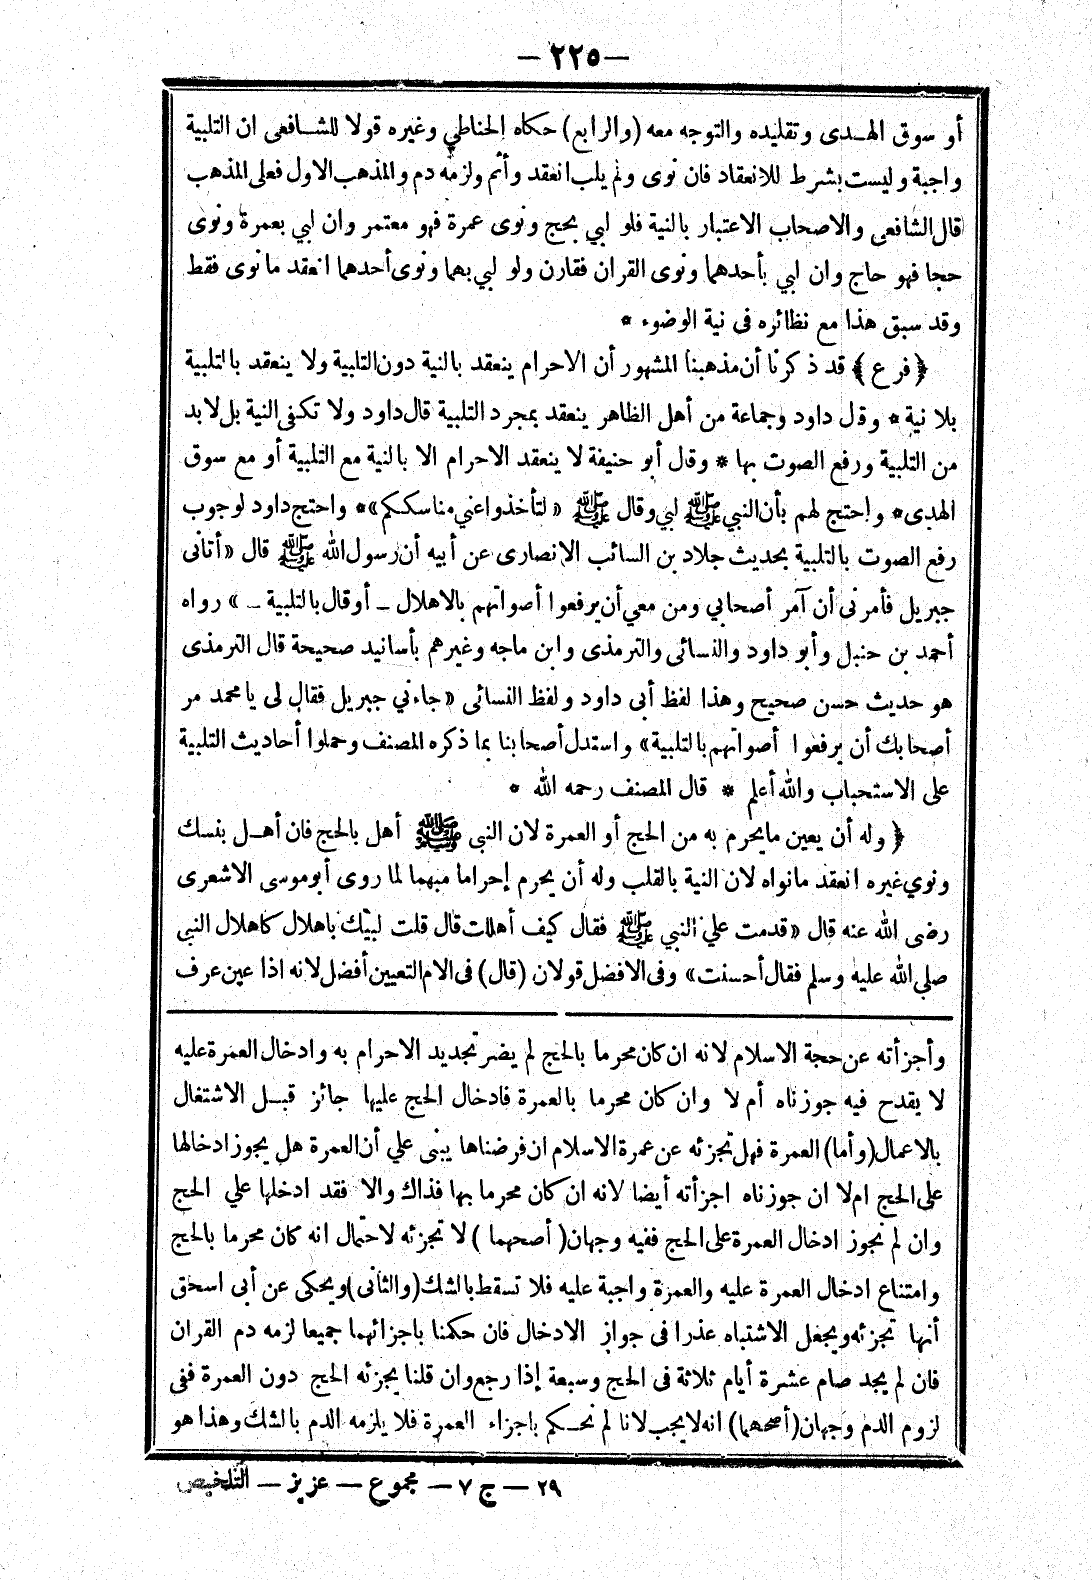 — ٢٢٥ —
أو سوق الهـدى وتقليده والتوجه معه (والرابع) حكاه الحناطي وغيره قولا للشـافعى ان التلبية
واجبة وليست بشرط للانعقاد فان نوى ولم يلب انعقد وأثم ولزمه دم والمذهب الاول فعلى المذهب
قال الشافعى والاصحاب الاعتبار بالنية فلو لبي بحج ونوى عمرة فهو معتمر وان لبي بعمرة ونوى
حجا فهو حاج وان لبي بأحدهما ونوى القران فقارن ولو لبي بهما ونوى أحدهما انعقد مانوى فقط
وقد سبق هذا مع نظائره فى نية الوضوء *
﴿ فرع ﴾ قد ذكرنا أن مذهبنا المشهور أن الاحرام ينعقد بالنية دون التلبية ولا ينعقد بالتلبية
بلا نية * وقال داود وجماعة من أهل الظاهر ينعقد بمجرد التلبية قال داود ولا تكفى النية بل لابد
من التلبية ورفع الصوت بها * وقال أبو حنيفة لا ينعقد الاحرام الا بالنية مع التلبية أو مع سوق
الهدى * واحتج لهم بأن النبي ﷺ لبي وقال ﷺ « لتأخذوا عني مناسككم » * واحتج داود لوجوب
رفع الصوت بالتلبية بحديث جلاد بن السائب الانصارى عن أبيه أن رسول الله ﷺ قال « أتانى
جبريل فأمرنى أن آمر أصحابي ومن معي أن يرفعوا أصواتهم بالاهلال ـ أوقال بالتلبية ـ » رواه
أحمد بن حنبل وأبو داود والنسائى والترمذى وابن ماجه وغيرهم بأسانيد صحيحة قال الترمذى
هو حديث حسن صحيح وهذا لفظ أبى داود ولفظ النسائى « جاءني جبريل فقال لى يا محمد مر
أصحابك أن يرفعوا أصواتهم بالتلبية » واستدل أصحابنا بما ذكره المصنف وحملوا أحاديث التلبية
على الاستحباب والله أعلم * قال المصنف رحمه الله *
﴿ وله أن يعين مايحرم به من الحج أو العمرة لان النبى ﷺ أهل بالحج فان أهـل بنسك
ونوي غيره انعقد مانواه لان النية بالقلب وله أن يحرم إحراما مبهما لما روى أبو موسى الاشعرى
رضى الله عنه قال « قدمت علي النبي ﷺ فقال كيف أهللت قال قلت لبيك باهلال كاهلال النبى
صلي الله عليه وسلم فقال أحسنت » وفى الافضل قولان (قال) فى الام التعيين أفضل لانه اذا عين عرف
وأجزأته عن حجة الاسلام لانه ان كان محرما بالحج لم يضر تجديد الاحرام به وادخال العمرة عليه
لا يقدح فيه جوزناه أم لا وان كان محرما بالعمرة فادخال الحج عليها جائز قبـل الاشتغال
بالاعمال (وأما) العمرة فهل تجزئه عن عمرة الاسلام ان فرضناها يبنى علي أن العمرة هل يجوز ادخالها
على الحج ام لا ان جوزناه اجزأته أيضا لانه ان كان محرما بها فذاك والا فقد ادخلها علي الحج
وان لم نجوز ادخال العمرة على الحج ففيه وجهان (أصحهما) لا تجزئه لاحتمال انه كان محرما بالحج
وامتناع ادخال العمرة عليه والعمرة واجبة عليه فلا تسقط بالشك (والثانى) ويحكى عن أبى اسحق
أنها تجزئه ويجعل الاشتباه عذرا فى جواز الادخال فان حكمنا باجزائهما جميعا لزمه دم القران
فان لم يجد صام عشرة أيام ثلاثة فى الحج وسبعة إذا رجع وان قلنا يجزئه الحج دون العمرة ففى
لزوم الدم وجهان (أصحهما) انه لا يجب لانا لم نحـكم باجزاء العمرة فلا يلزمه الدم بالشك وهذا هو
٢٩ — ج ٧ — مجموع — عزيز — التلخيص